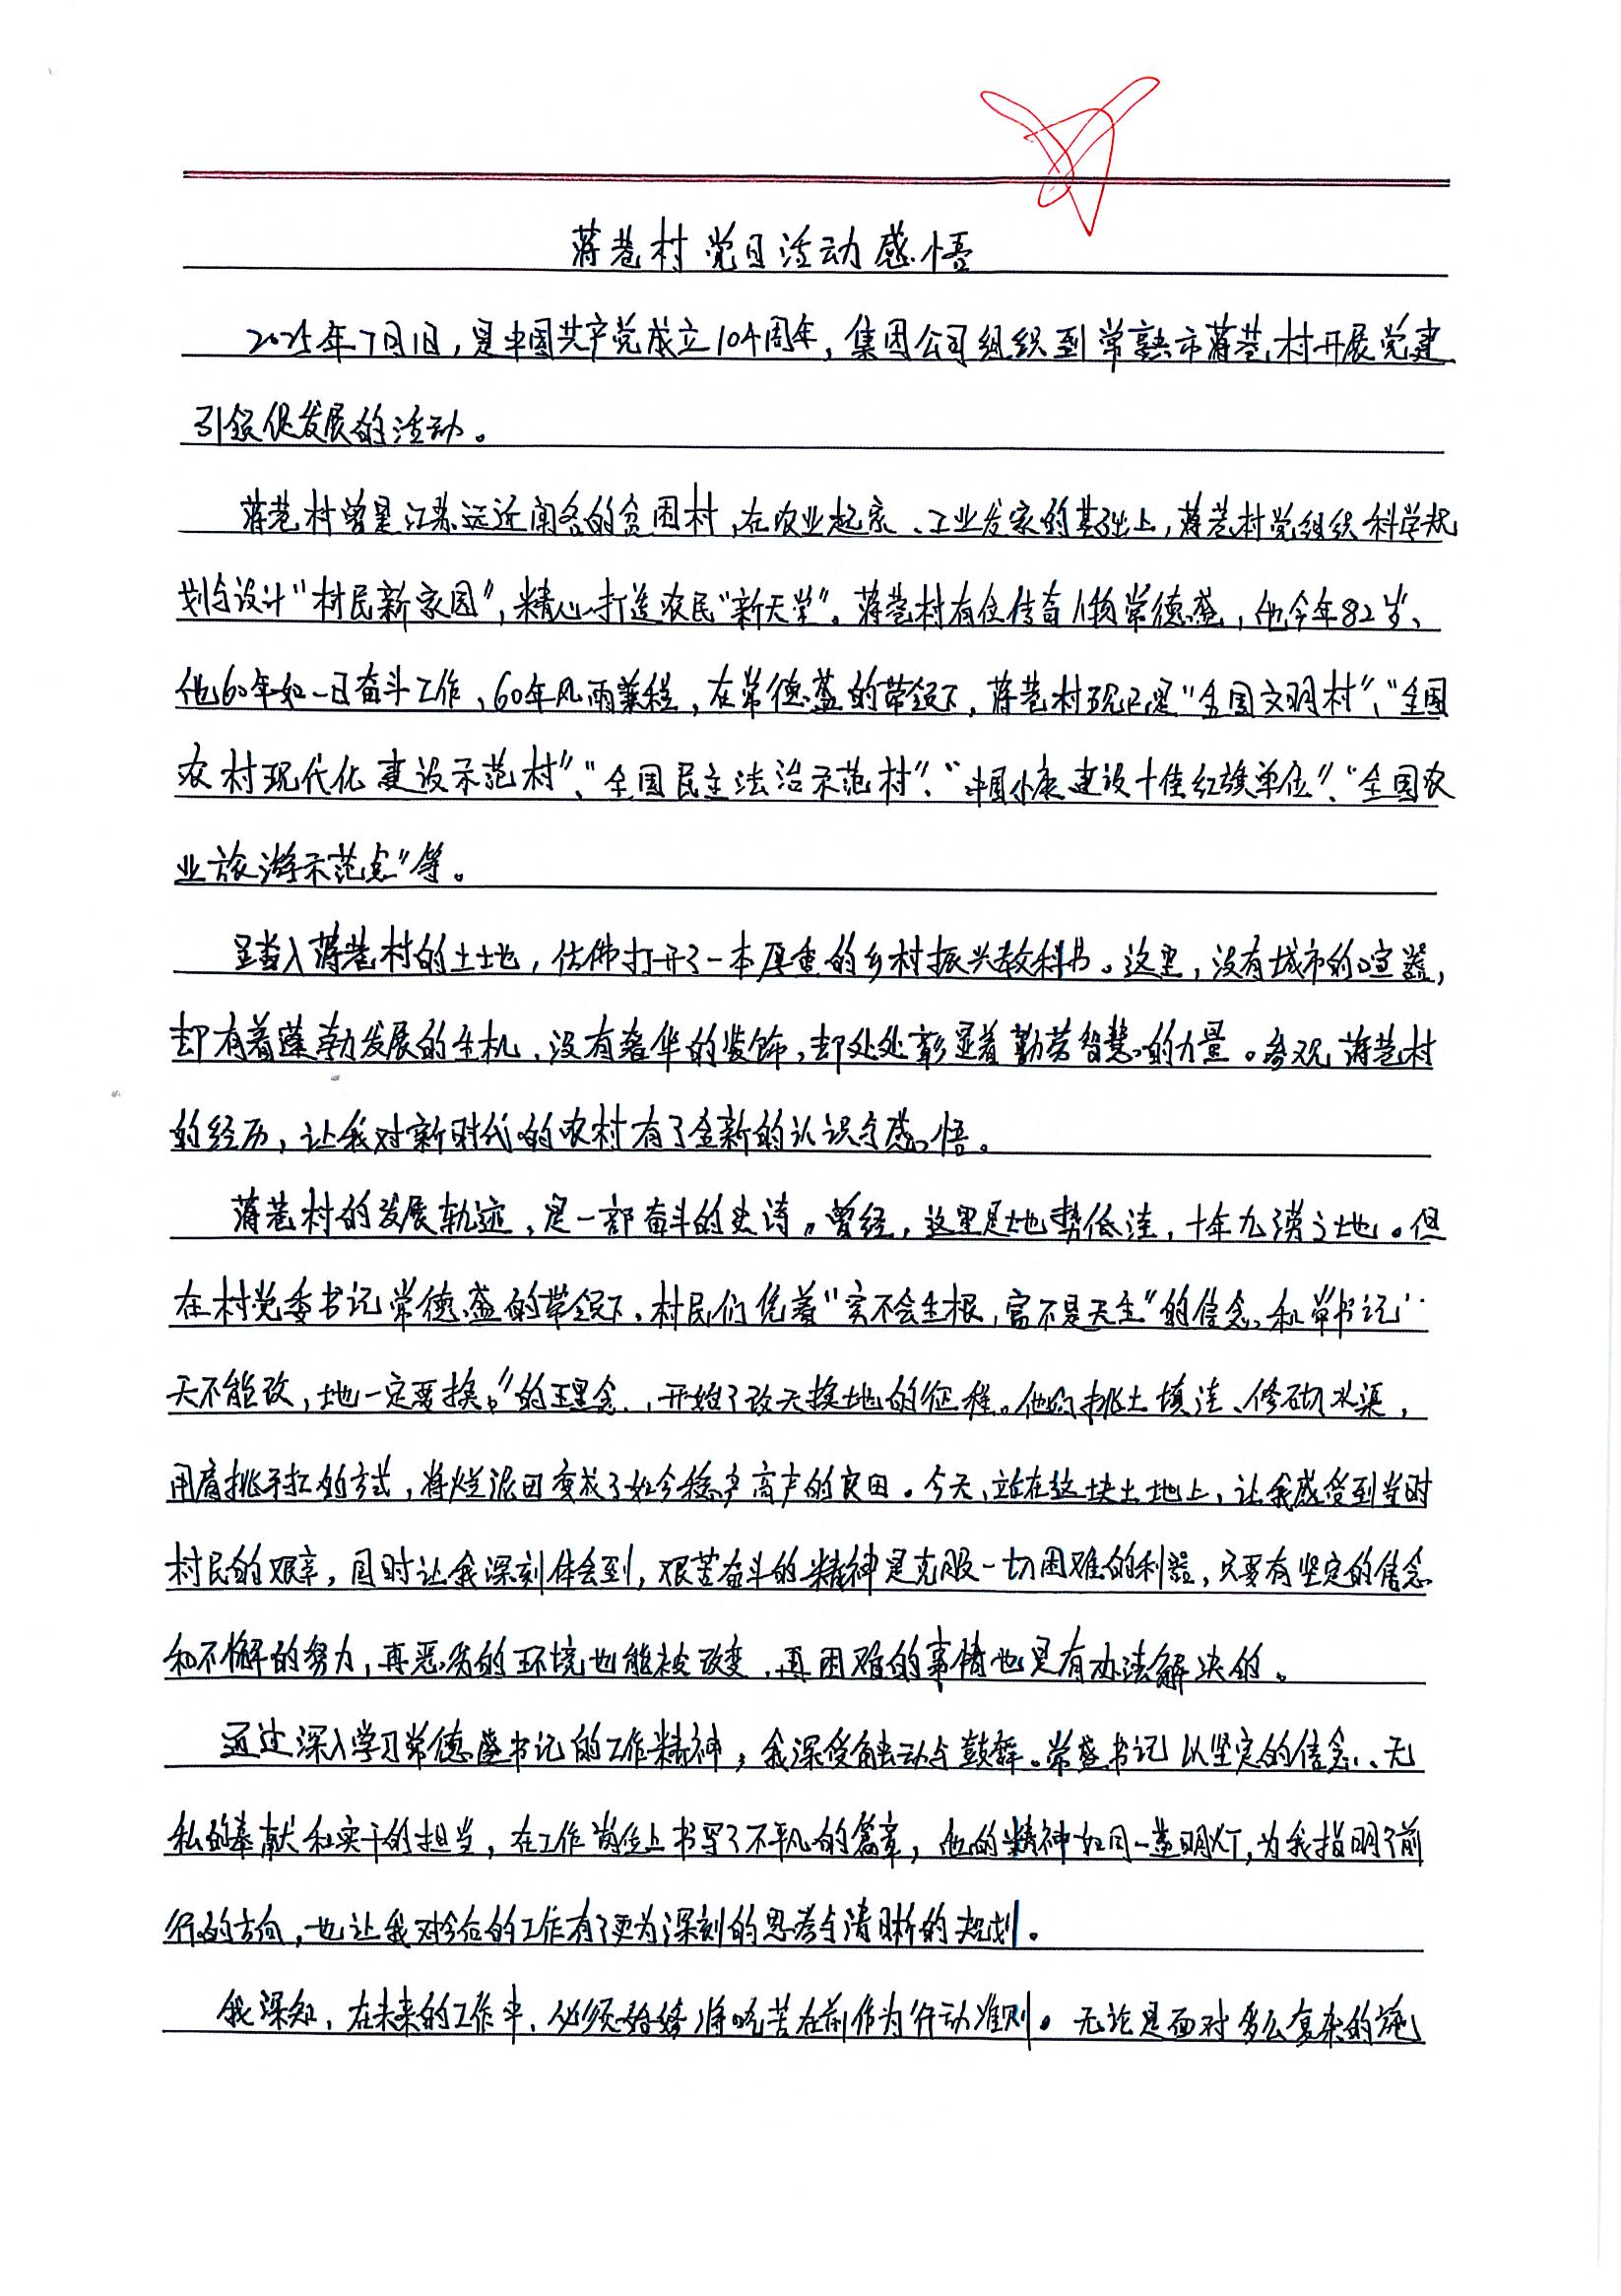 蒋巷村党日活动感悟
2025年7月1日，是中国共产党成立104周年，集团公司组织到常熟市蒋巷村开展党建
引领促发展的活动。
蒋巷村曾是江苏远近闻名的贫困村，在农业起家、工业发家的基础上，蒋巷村党组织科学规
划与设计“村民新家园”，精心打造农民“新天堂”。蒋巷村有位传奇人物常德盛，他今年82岁、
他60年如一日奋斗工作，60年风雨兼程，在常德盛的带领下，蒋巷村现已是“全国文明村”、“全国
农村现代化建设示范村”、“全国民主法治示范村”、“中国小康建设十佳红旗单位”、“全国农
业旅游示范点”等。
踏入蒋巷村的土地，仿佛打开了一本厚重的乡村振兴教科书。这里，没有城市的喧嚣，
却有着蓬勃发展的生机，没有奢华的装饰，却处处彰显着勤劳智慧的力量。参观蒋巷村
的经历，让我对新时代的农村有了全新的认识与感悟。
蒋巷村的发展轨迹，是一部奋斗的史诗。曾经，这里是地势低洼，十年九涝之地。但
在村党委书记常德盛的带领下，村民们凭着“穷不会生根，富不是天生”的信念，和常书记“
天不能改，地一定要换。”的理念，开始了改天换地的征程。他们挑土填洼、修砌水渠，
用肩挑手扛的方式，将烂泥田变成了如今稳产高产的良田。今天，站在这块土地上，让我感受到当时
村民的艰辛，同时让我深刻体会到，艰苦奋斗的精神是克服一切困难的利器，只要有坚定的信念
和不懈的努力，再恶劣的环境也能被改变，再困难的事情也是有办法解决的。
通过深入学习常德盛书记的工作精神，我深受触动与鼓舞。常盛书记以坚定的信念、无
私的奉献和实干的担当，在工作岗位上书写了不平凡的篇章，他的精神如同一盏明灯，为我指明了前
行的方向，也让我对今后的工作有了更为深刻的思考与清晰的规划。
我深知，在未来的工作中，必须始终将吃苦在前作为行动准则。无论是面对多么复杂的施